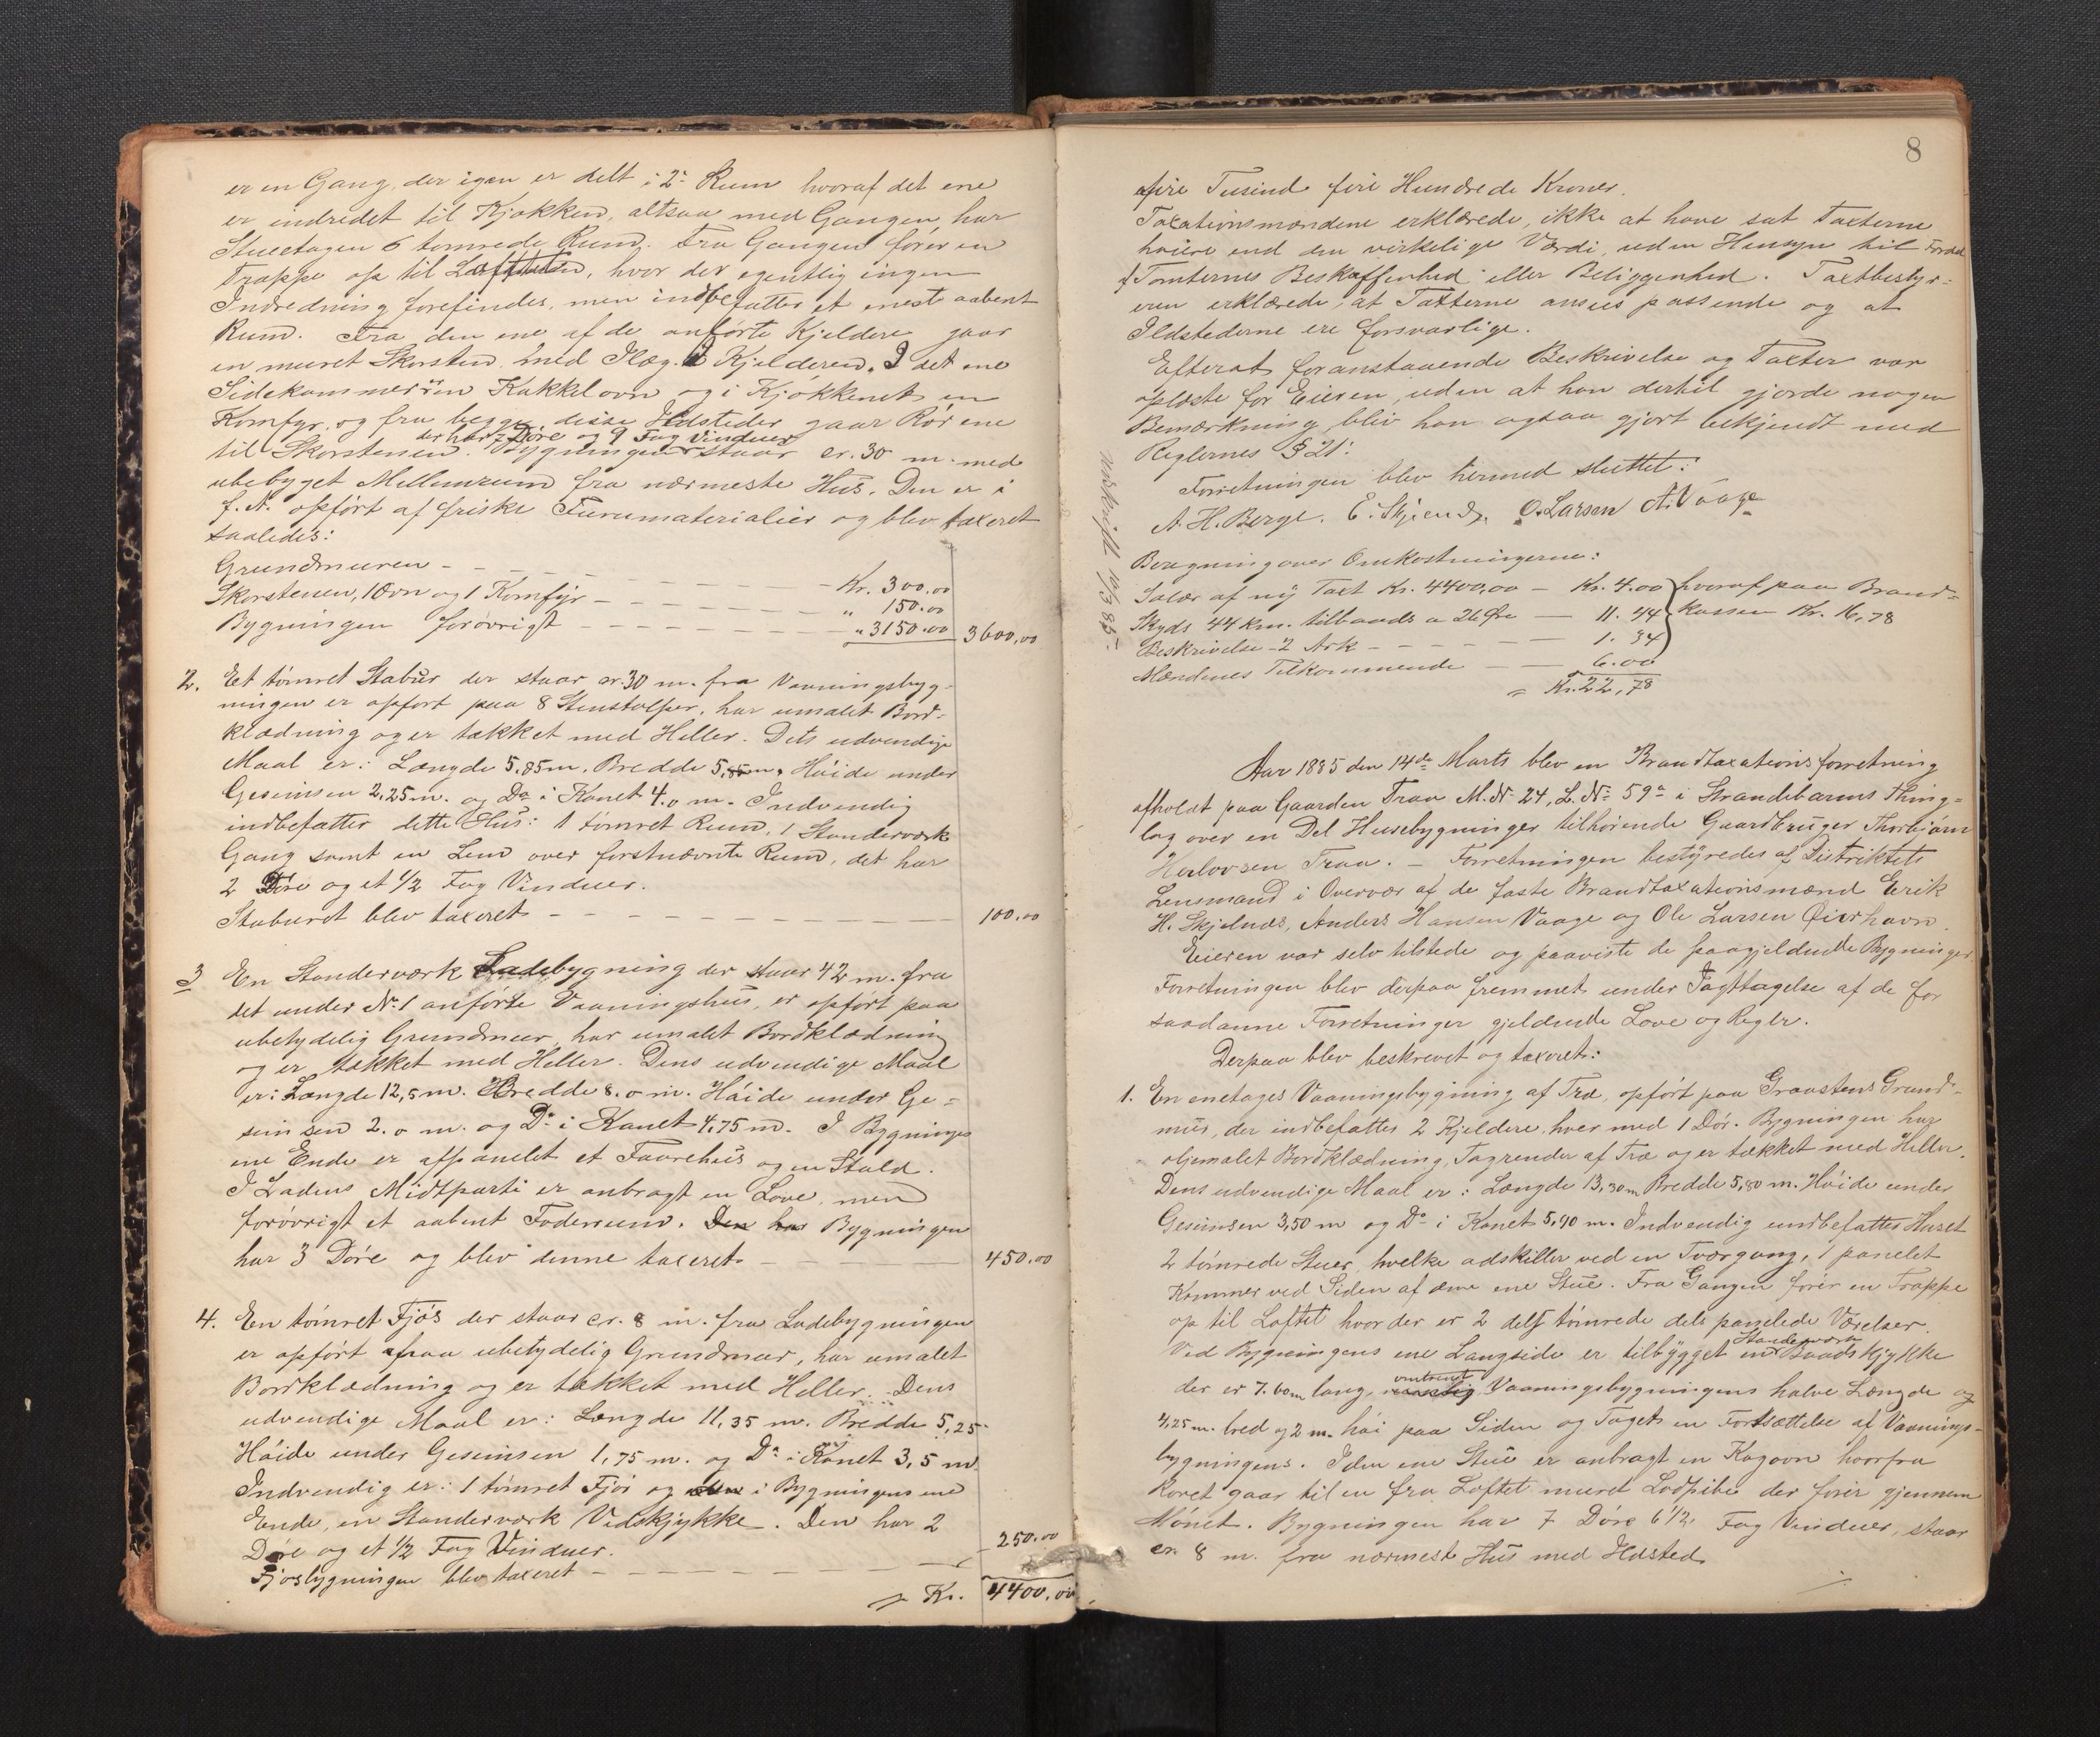 er en Gang, der igjen er delt i 2de Rum hvoraf det ene
er indredet til Kjøkken, altsaa med Gangen, har
Stueetagen 6 tømrede Rum. Fra Gangen fører en
Trappe op til Loftet, hvor der egentlig ingen
Indredning forefindes, men indbefatter et enest aabent
Rum. Fra den ene af de anførte Kjeldere gaar
en muret Skorsten med Ilæg i Kjelderen. I det ene
Sidekammer en Kakkelovn og i Kjøkkenet en
Komfyr, og fra begge disse Ildsteder gaar Rørene
der har 7 Døre og 9 Fag Vinduer
til Skorstenen. Bygningen staar cr. 30 m. med
ubebygget Mellemrum fra nærmeste Hus. Den er i
f. A. opført af friske Furumaterialier og blev taxeret
saaledes:
Grundmuren - Kr. 300,00
Skorstenen, 1 Ovn og 1 Komfyr - " 150.00
Bygningen forøvrigt - " 3150.00 3600,00
2. Et tømret Stabur der staar cr. 30 m. fra Vaaningsbyg-
ningen er opført paa 8 Stenstolper, har umalet Bord-
klædning og er tækket med Heller. Dets udvendige
Maal er: Længde 5,85 m, Bredde 5,85 m, Høide under
Gesimsen 2,25 m. og Do i Kønet 4,0 m. Indvendig
indbefatter dette Hus: 1 tømret Rum, 1 Standerværk
Gang samt en Lem over førstnævnte Rum, det har
2 Døre og et 1/2 Fag Vinduer.
Staburet blev taxeret - 100,00
3 En Standerværk Ladebygning der staar 42 m. fra
det under No 1 anførte Vaaningshus, er opført paa
ubetydelig Grundmur, har umalet Bordklædning
og er tækket med Heller. Dens udvendige Maal
er: Længde 12,5 m. Bredde 8,0 m. Høide under Ge-
simsen 2.0 m. og Do i Kønet 4,75 m. I Bygningens
ene Ende er afpanelet et Faarehus og en Stald.
I Ladens Midtparti er anbragt en Love, men
forøvrigt et aabent Foderrum. Den har Bygningen
har 3 Døre og blev denne taxeret - 450.00
4. En tømret Fjøs der staar cr. 8 m. fra Ladebygningen
er opført paa ubetydelig Grundmur, har umalet
Bordklædning og er tækket med Heller. Dens
udvendige Maal er: Længde 11,35 m. Bredde 5,25
Høide under Gesimsen 1,75 m. og Do i Kønet 3,5 m.
Indvendig er: 1 tømret Fjøs og i Bygningens ene
Ende, en Standerværk Vedskjykke. Den har 2
Døre og et 1/2 Fag Vinduer.
Fjøsbygningen blev taxeret - 250.00
Kr. 4400,00
8
fire Tusind fire Hundrede Kroner.
Taxationsmændene erklærede, ikke at have sat Taxterne
høiere end den virkelige Værdi, uden Hensyn til Fordel
af Tomternes Beskaffenhed eller Beliggenhed. Taxtbestyr-
eren erklærede, at Taxterne ansees passende og at
Ildstederne ere forsvarlige.
Efterat foranstaaende Beskrivelse og Taxter var
oplæste for Eieren, uden at han dertil gjorde nogen
Bemærkning, blev han ogsaa gjort bekjendt med
Reglernes § 21:
Forretningen blev hermed sluttet:
A. H. Berge. E. Skjelnds. O. Larsen A. Vaage
Udskrift 17/3 85.
Beregning over Omkostningerne:
Salær af ny Taxt Kr. 4400,00 - Kr. 4.00 } hvoraf paa Brand-
Skyds 44 km. tilbaads a 26 Øre - 11. 44 } kassen Kr. 16,78
Beskrivelse 2 Ark - 1. 34
Mændenes Tilkommende - 6.00
Kr. 22,78
Aar 1885 den 14de Marts blev en Brandtaxationsforretning
afholdt paa Gaarden Traa M.No 24, L.No 59a i Strandebarms Thing-
lag over en Del Husebygninger tilhørende Gaardbruger Thorbjørn
Herlovsen Traa. - Forretningen bestyredes af Distriktets
Lensmand i Overvær af de faste Brandtaxationsmænd Erik
H. Skjelnds, Anders Hansen Vaage og Ole Larsen Øierhavn.
Eieren var selv tilstede og paaviste de paagjeldende Bygninger.
Forretningen blev derpaa fremmet under Iagttagelse af de for
saadanne Forretninger gjeldende Love og Regler.
Derpaa blev beskrevet og taxeret:
1. En enetages Vaaningsbygning af Træ, opført paa Graastens Grund-
mur, der indbefatter 2 Kjeldere, hver med 1 Dør. Bygningen har
oljemalet Bordklædning, Tagrender af Træ og er tækket med Heller.
Dens udvendige Maal er: Længde 13,30 m Bredde 5,80 m. Høide under
Gesimsen 3,50 m og Do i Kønet 5,90 m. Indvendig indbefatter Huset
2 tømrede Stuer, hvelke adskiller ved en Tvergang, 1 panelet
Kammer ved Siden af den ene Stue. Fra Gangen fører en Trappe
op til Loftet hvor der er 2 dels tømrede dels panelede Værelser.
Standerværk
Ved Bygningens ene Langside er tilbygget en Baadskjykke
omtrent
der er 7.60 m lang, Vaaningsbygningens halve Længde og
4,25 m. bred og 2 m. høi paa Siden og Taget en Fortsættelse af Vaanings-
bygningens. I den ene Stue er anbragt en Kogovn hvorfra
Røret gaar til en fra Loftet muret Lodpibe der fører gjennem
Mønet. Bygningen har 7 Døre 6 1/2 Fag Vinduer, staar
cr. 8 m. fra nærmest Hus med Ildsted.